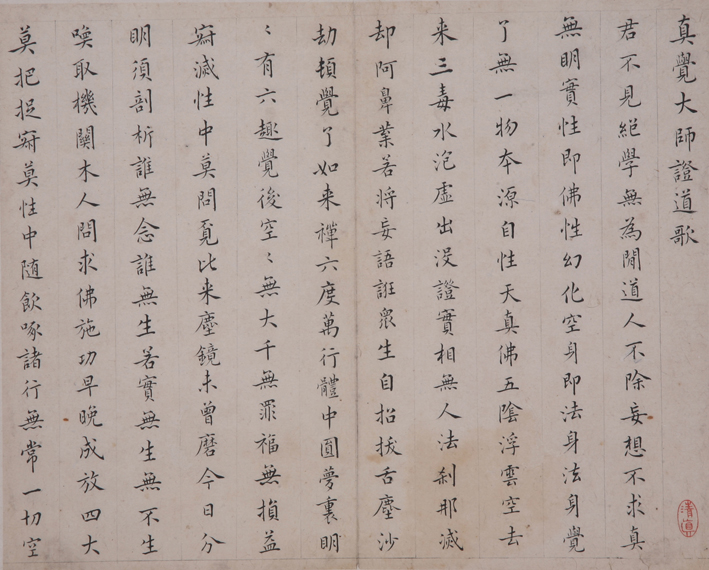 真覺大師證道歌
君不見絕學無為閒道人不除妄想不求真
無明實性即佛性幻化空身即法身法身覺
了無一物本源自性天真佛五陰浮雲空去
来三毒水泡虛出沒證實相無人法剎那滅
却阿鼻業若將妄語誑眾生自招拔舌塵沙
劫頓覺了如来禪六度萬行體中圓夢裏明
〻有六趣覺後空〻無大千無罪福無損益
寂滅性中莫問覓比来塵鏡未曾磨今日分
明須剖析誰無念誰無生若實無生無不生
喚取機關木人問求佛施功早晚成放四大
莫把捉寂莫性中随飲啄諸行無常一切空